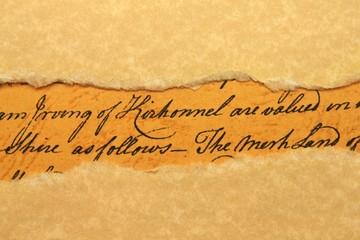 am Irving of Kirkonnel are valued in
Shire as follows – The Merk Land of